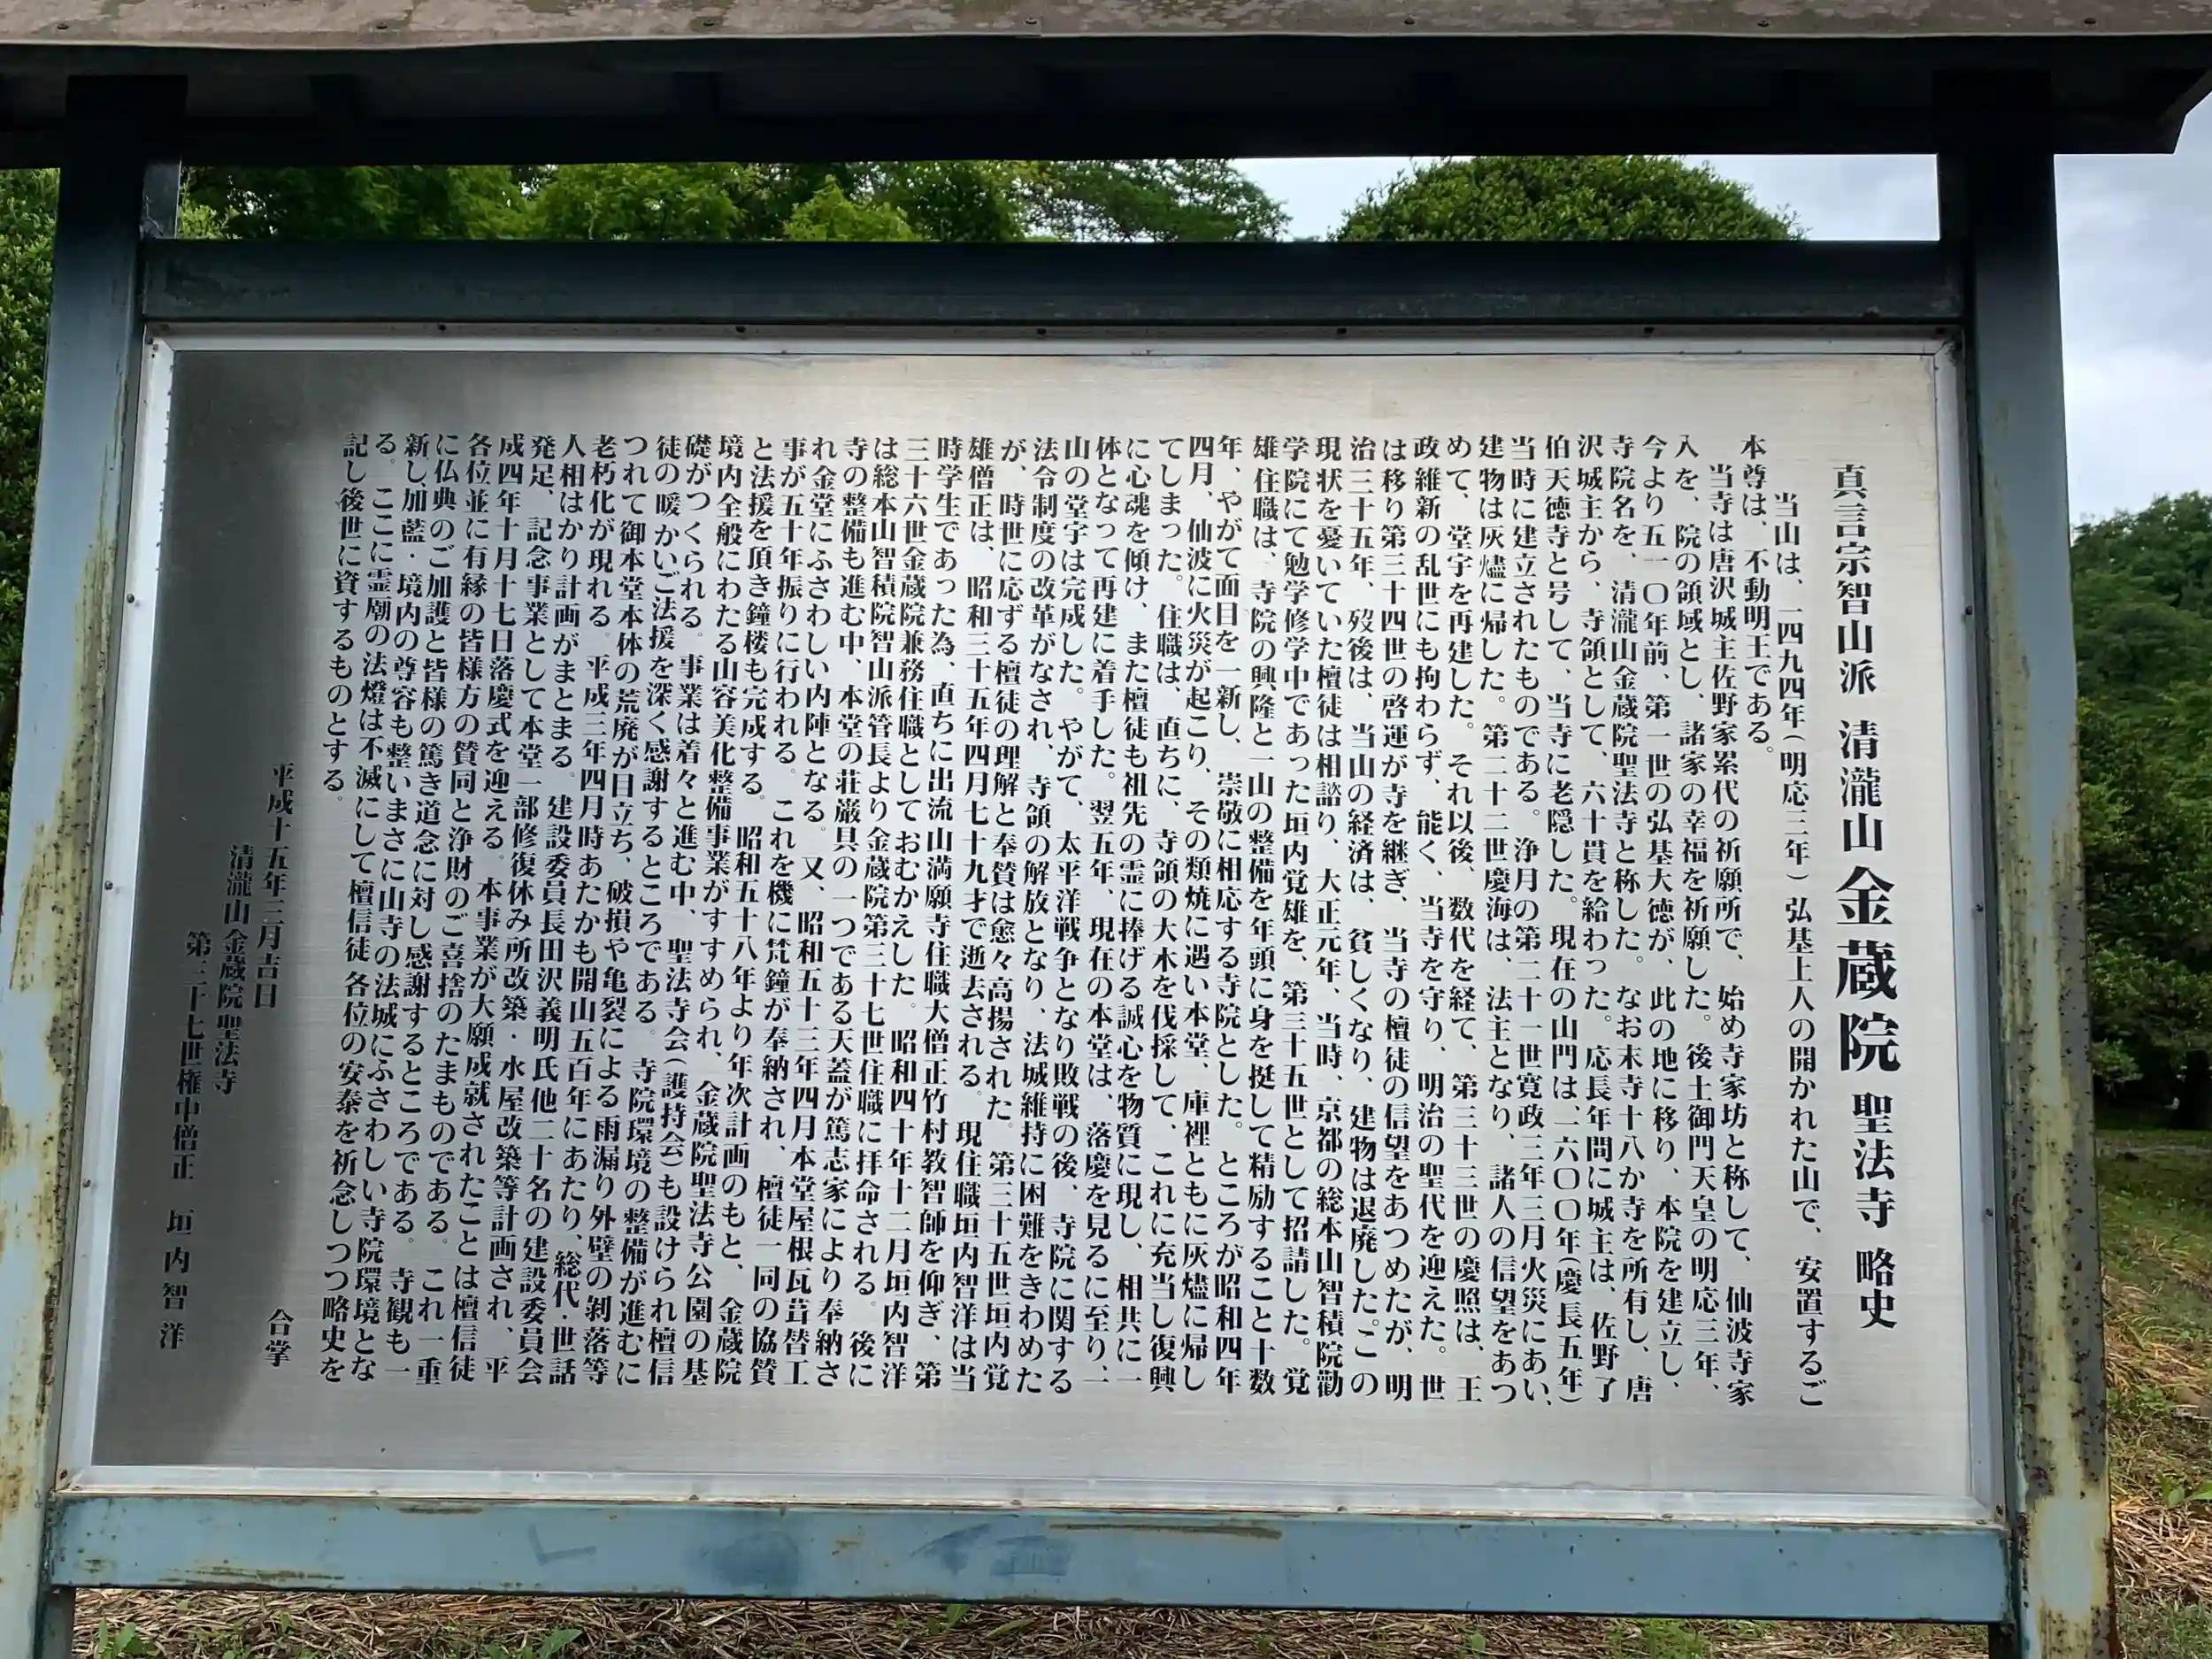 真言宗智山派 清瀧山 金蔵院 聖法寺 略史
当山は、一四九四年(明応三年)弘基上人の開かれた山で、安置するご
本尊は、不動明王である。
当寺は唐沢城主佐野家累代の祈願所で、始め寺家坊と称して、仙波寺家
入を、院の領域とし、諸家の幸福を祈願した。後土御門天皇の明応三年、
今より五一〇年前、第一世の弘基大徳が、此の地に移り、本院を建立し、
寺院名を、清瀧山金蔵院聖法寺と称した。なお末寺十八か寺を所有し、唐
沢城主から、寺領として、六十貫を給わった。応長年間に城主は、佐野了
伯天徳寺と号して、当寺に老隠した。現在の山門は、一六〇〇年(慶長五年)
当時に建立されたものである。浄月の第二十一世寛政三年三月火災にあい、
建物は灰燼に帰した。第二十二世慶海は、法主となり、諸人の信望をあつ
めて、堂宇を再建した。それ以後、数代を経て、第三十三世の慶照は、王
政維新の乱世にも拘わらず、能く、当寺を守り、明治の聖代を迎えた。世
は移り第三十四世の啓運が寺を継ぎ、当寺の檀徒の信望をあつめたが、明
治三十五年、歿後は、当山の経済は、貧しくなり、建物は退廃した。この
現状を憂いていた檀徒は相談り、大正元年、当時、京都の総本山智積院勧
学院にて勉学修学中であった垣内覚雄を、第三十五世として招請した。覚
雄住職は、寺院の興隆と一山の整備を年頭に身を挺して精励すること十数
年、やがて面目を一新し、崇敬に相応する寺院とした。ところが昭和四年
四月、仙波に火災が起こり、その類焼に遇い本堂、庫裡ともに灰燼に帰し
てしまった。住職は、直ちに、寺領の大木を伐採して、これに充当し復興
に心魂を傾け、また檀徒も祖先の霊に捧げる誠心を物質に現し、相共に一
体となって再建に着手した。翌五年、現在の本堂は、落慶を見るに至り、一
山の堂宇は完成した。やがて、太平洋戦争となり敗戦の後、寺院に関する
法令制度の改革がなされ、寺領の解放となり、法城維持に困難をきわめた
が、時世に応ずる檀徒の理解と奉賛は愈々高揚された。第三十五世垣内覚
雄僧正は、昭和三十五年四月七十九才で逝去される。現住職垣内智洋は当
時学生であった為、直ちに出流山満願寺住職大僧正竹村教智師を仰ぎ、第
三十六世金蔵院兼務住職としておむかえした。昭和四十年十二月垣内智洋
は総本山智積院智山派管長より金蔵院第三十七世住職に拝命される。後に
寺の整備も進む中、本堂の荘厳具の一つである天蓋が篤志家により奉納さ
れ金堂にふさわしい内陣となる。又、昭和五十三年四月本堂屋根瓦葺替工
事が五十年振りに行われる。これを機に梵鐘が奉納され、檀徒一同の協賛
と法援を頂き鐘楼も完成する。昭和五十八年より年次計画のもと、金蔵院
境内全般にわたる山容美化整備事業がすすめられ、金蔵院聖法寺公園の基
礎がつくられる。事業は着々と進む中、聖法寺会(護持会)も設けられ檀信
徒の暖かいご法援を深く感謝するところである。寺院環境の整備が進むに
つれて御本堂本体の荒廃が目立ち、破損や亀裂による雨漏り外壁の剥落等
老朽化が現れる。平成三年四月時あたかも開山五百年にあたり、総代・世話
人相はかり計画がまとまる。建設委員長田沢義明氏他二十名の建設委員会
発足、記念事業として本堂一部修復休み所改築・水屋改築等計画され、平
成四年十月十七日落慶式を迎える。本事業が大願成就されたことは檀信徒
各位並に有縁の皆様方の賛同と浄財のご喜捨のたまものである。これ一重
に仏典のご加護と皆様の篤き道念に対し感謝するところである。寺観も一
新し、加藍・境内の尊容も整いまさに山寺の法城にふさわしい寺院環境とな
る。ここに霊廟の法燈は不滅にして檀信徒各位の安泰を祈念しつつ略史を
記し後世に資するものとする。
合掌
平成十五年三月吉日
清瀧山金蔵院聖法寺
第三十七世権中僧正 垣内智洋